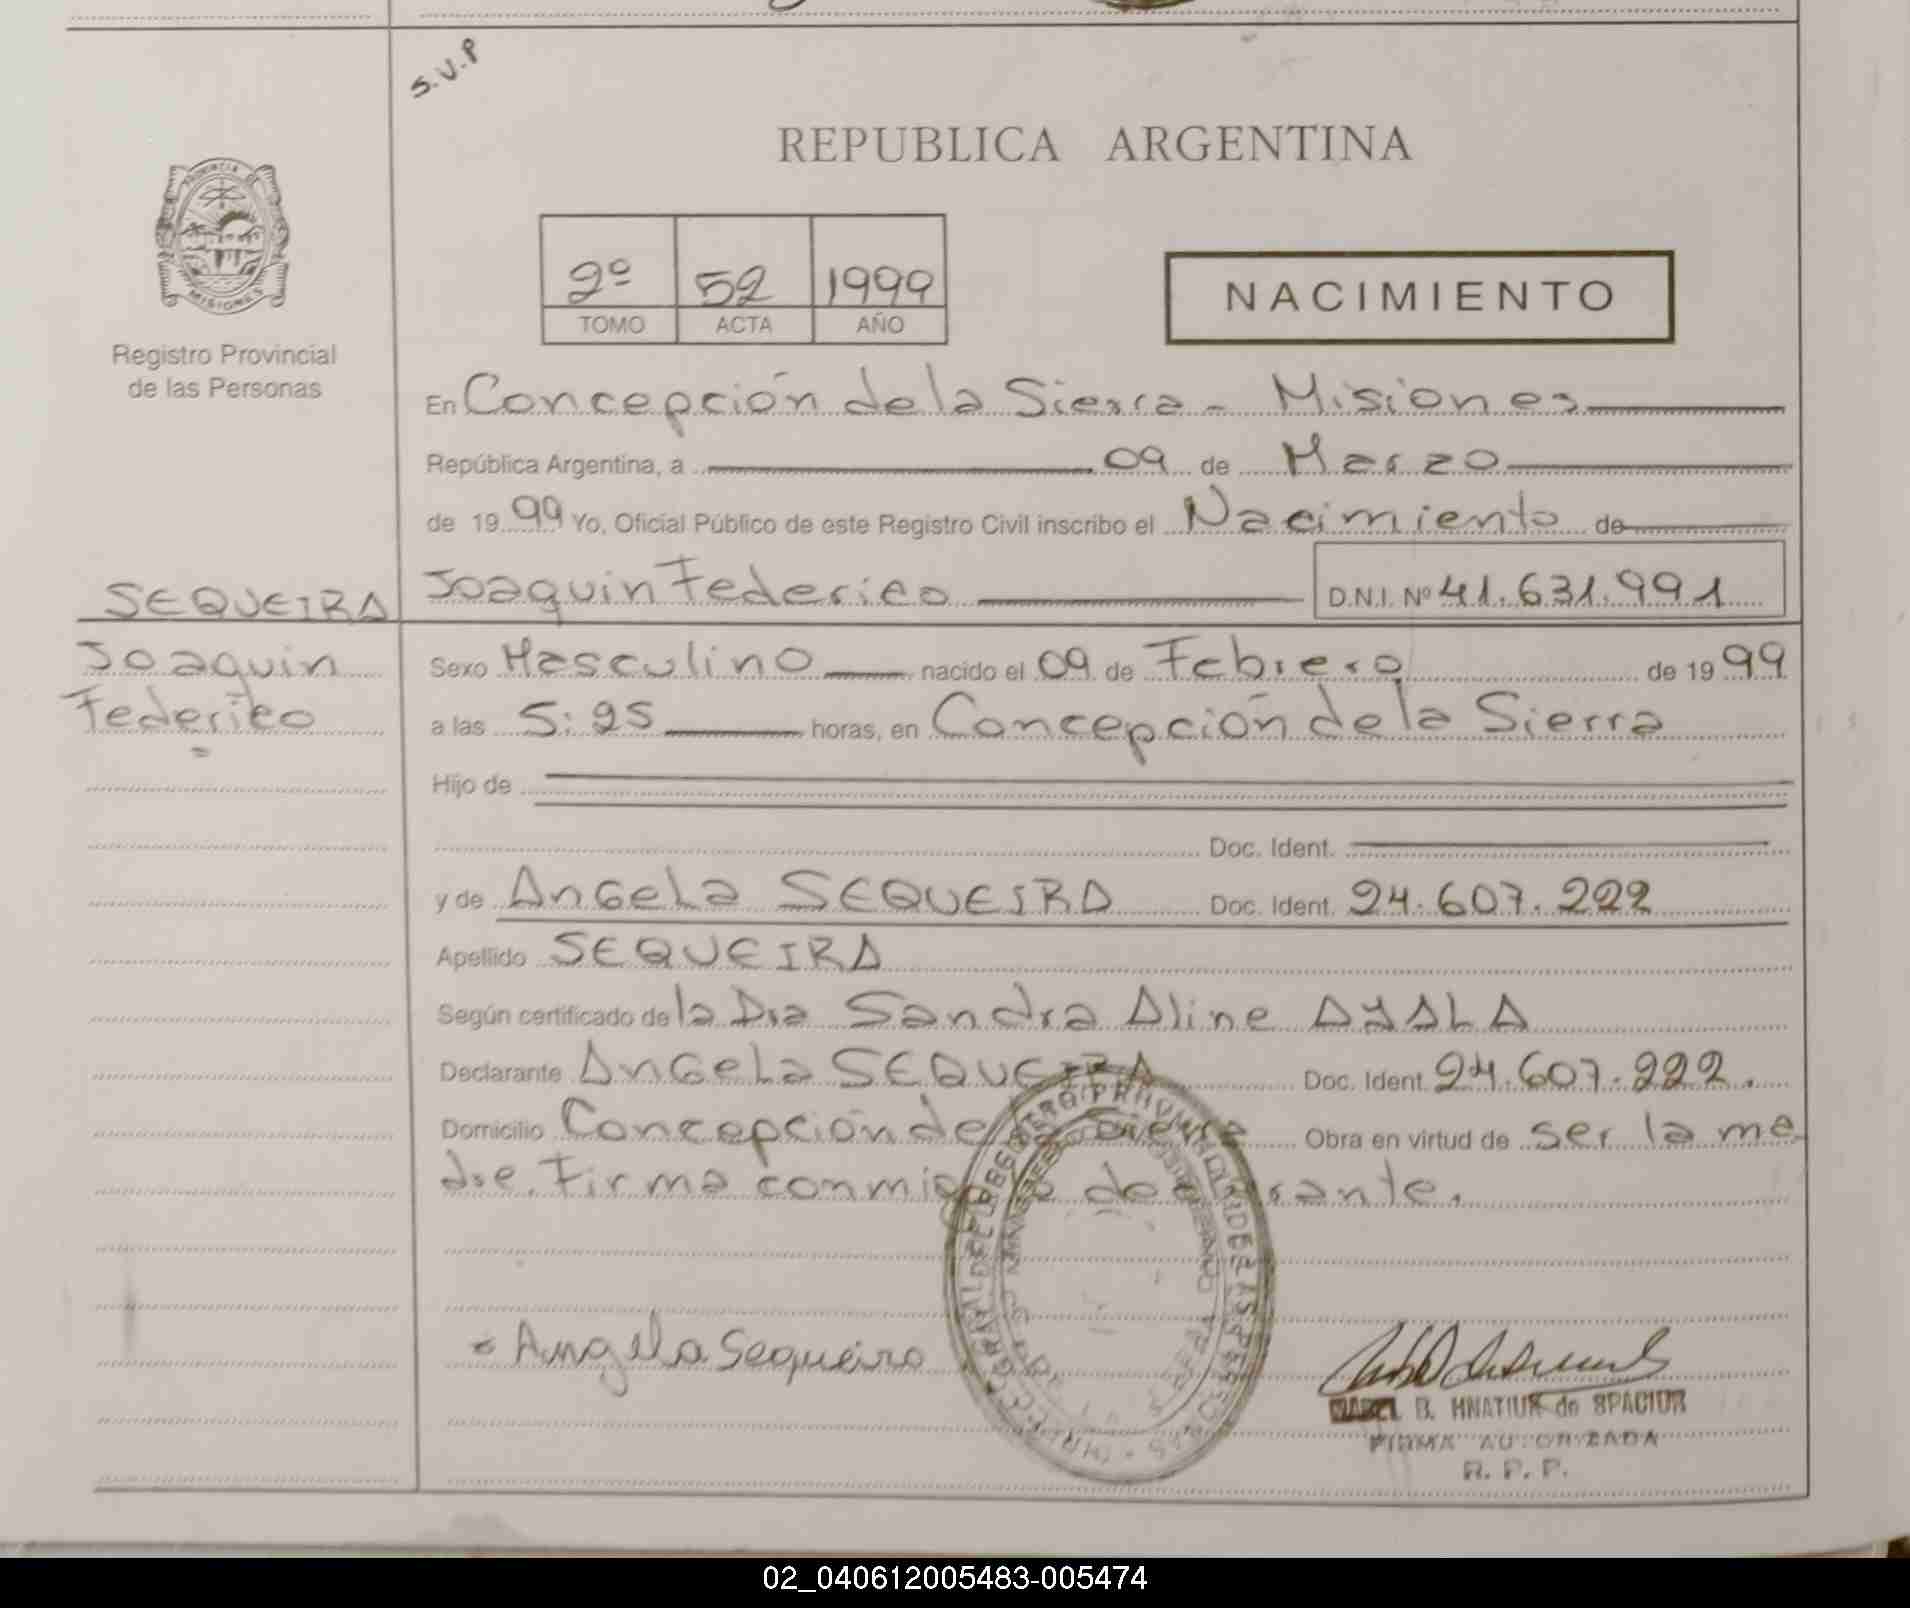 S.V.P
REPUBLICA ARGENTINA
PROVINCIA DE
MISIONES
Registro Provincial
de las Personas
2º 52 1999
TOMO ACTA AÑO
NACIMIENTO
En Concepción de la Sierra - Misiones
República Argentina, a 09 de Marzo
de 1999 Yo, Oficial Público de este Registro Civil inscribo el Nacimiento de
SEQUEIRA
Joaquin Federico D.N.I. Nº 41.631.991
Joaquin
Federico
Sexo Masculino nacido el 09 de Febrero de 1999
a las 5:25 horas, en Concepción de la Sierra
Hijo de
Doc. Ident.
y de Angela SEQUEIRA Doc. Ident. 24.607.222
Apellido SEQUEIRA
Según certificado de la Dra Sandra Aline AYALA
Declarante Angela SEQUEIRA Doc. Ident. 24.607.222.
Domicilio Concepción de la Sierra Obra en virtud de ser la ma
dre. Firma conmigo la declarante.
Angela Sequeira
MABEL B. HNATIUK de SPACIUK
FIRMA AUTORIZADA
R. P. P.
02_040612005483-005474